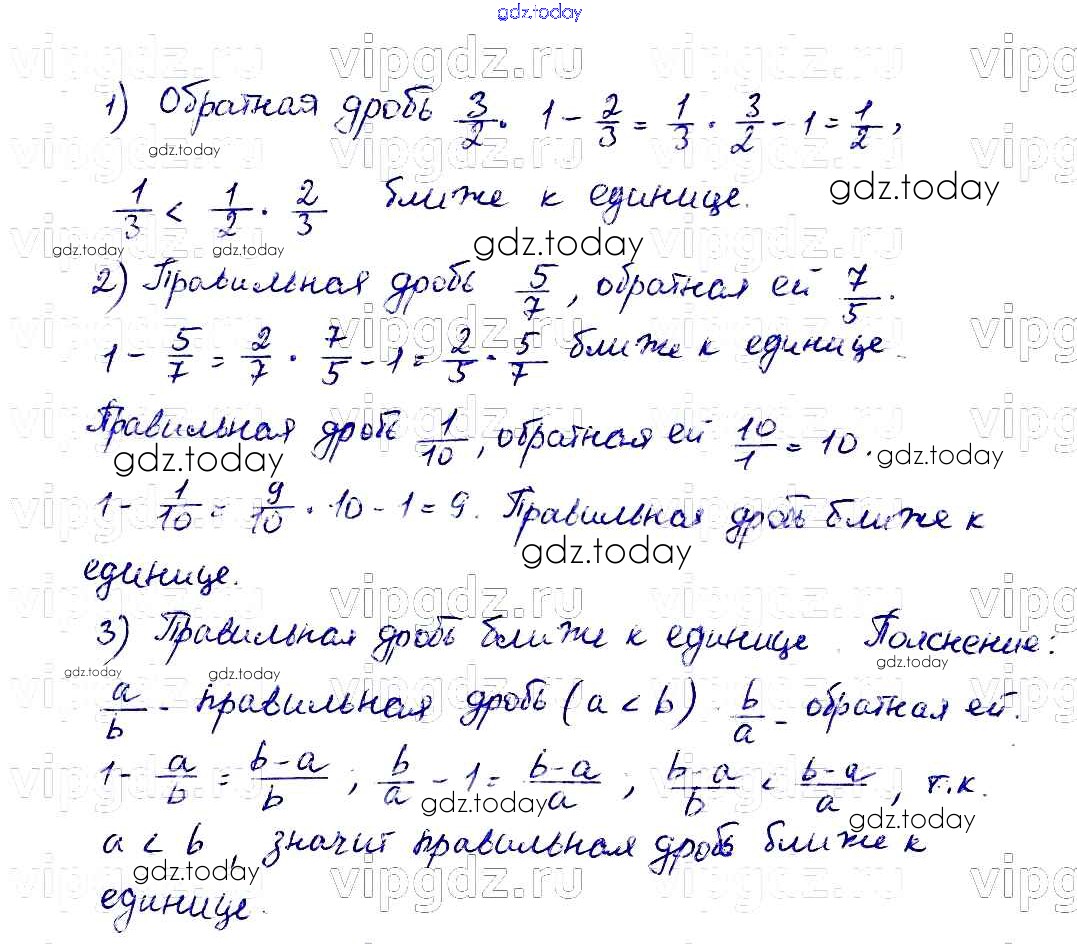 gdz.today
1) Обратная дробь 3/2. 1 - 2/3 = 1/3. 3/2 - 1 = 1/2,
1/3 < 1/2. 2/3 ближе к единице.
2) Правильная дробь 5/7, обратная ей 7/5.
1 - 5/7 = 2/7. 7/5 - 1 = 2/5. 5/7 ближе к единице.
Правильная дробь 1/10, обратная ей 10/1 = 10.
1 - 1/10 = 9/10. 10 - 1 = 9. Правильная дробь ближе к
единице.
3) Правильная дробь ближе к единице. Пояснение:
a/b - правильная дробь (a < b). b/a - обратная ей.
1 - a/b = b-a/b ; b/a - 1 = b-a/a ; b-a/b < b-a/a, т.к.
a < b, значит правильная дробь ближе к
единице.